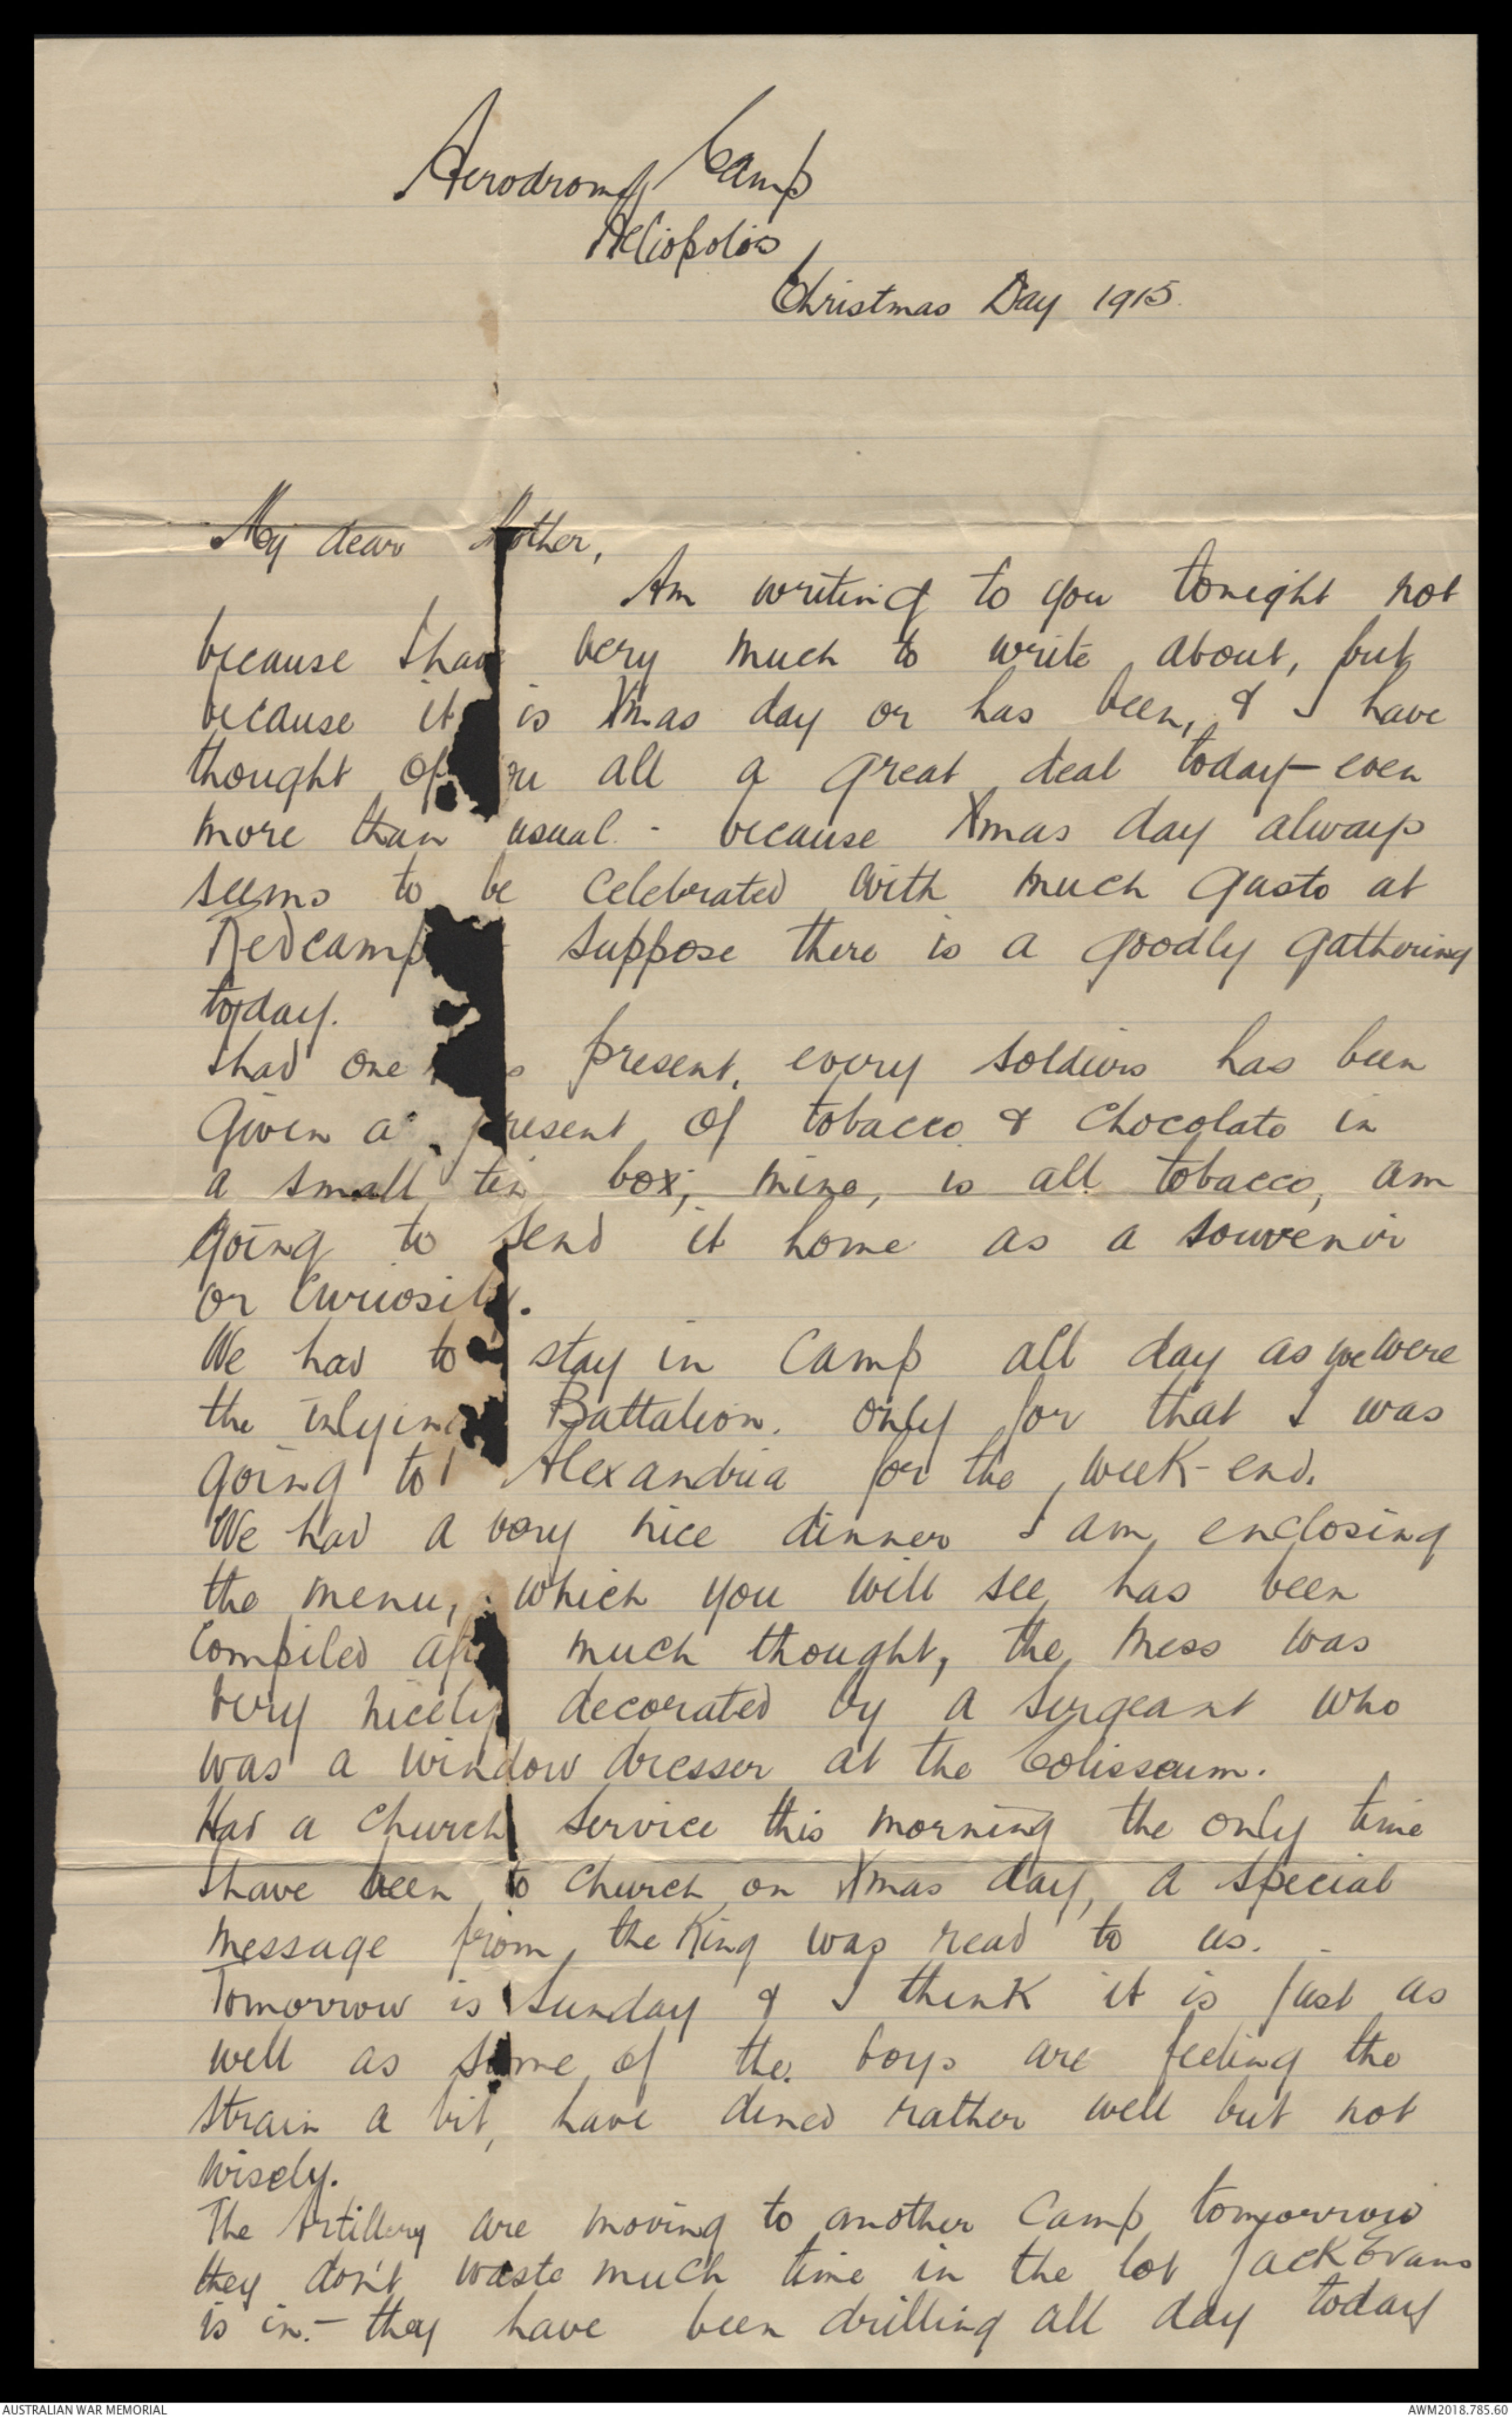 Aerodrome Camp
Heliopolis
Christmas Day 1915.
My dear Mother,
Am writing to you tonight not
because I have very much to write about, but
because it is Xmas day or has been, & I have
thought of you all a great deal today - even
more than usual - because Xmas day always
seems to be celebrated with much gusto at
Redcamp suppose there is a goodly gathering
today.
I had one present, every soldiers has been
given a present of tobacco & chocolate in
a small tin box; mine, is all tobacco, am
going to send it home as a souvenir
or curiosity.
We had to stay in Camp all day as we were
the inlying Battalion. Only for that I was
going to Alexandria for the week-end.
We had a very nice dinner I am enclosing
the menu, which you will see has been
compiled after much thought, the mess was
very nicely decorated by a Sergeant who
was a window dresser at the Colisseum.
Had a church service this morning the only time
I have been to church on Xmas day, a special
message from the King was read to us.
Tomorrow is Sunday & I think it is just as
well as some of the boys are feeling the
strain a bit, have dined rather well but not
wisely.
The Artillery are moving to another Camp tomorrow
they don't waste much time in the lot Jack Evans
is in. - they have been drilling all day today
AUSTRALIAN WAR MEMORIAL
AWM2018.785.60